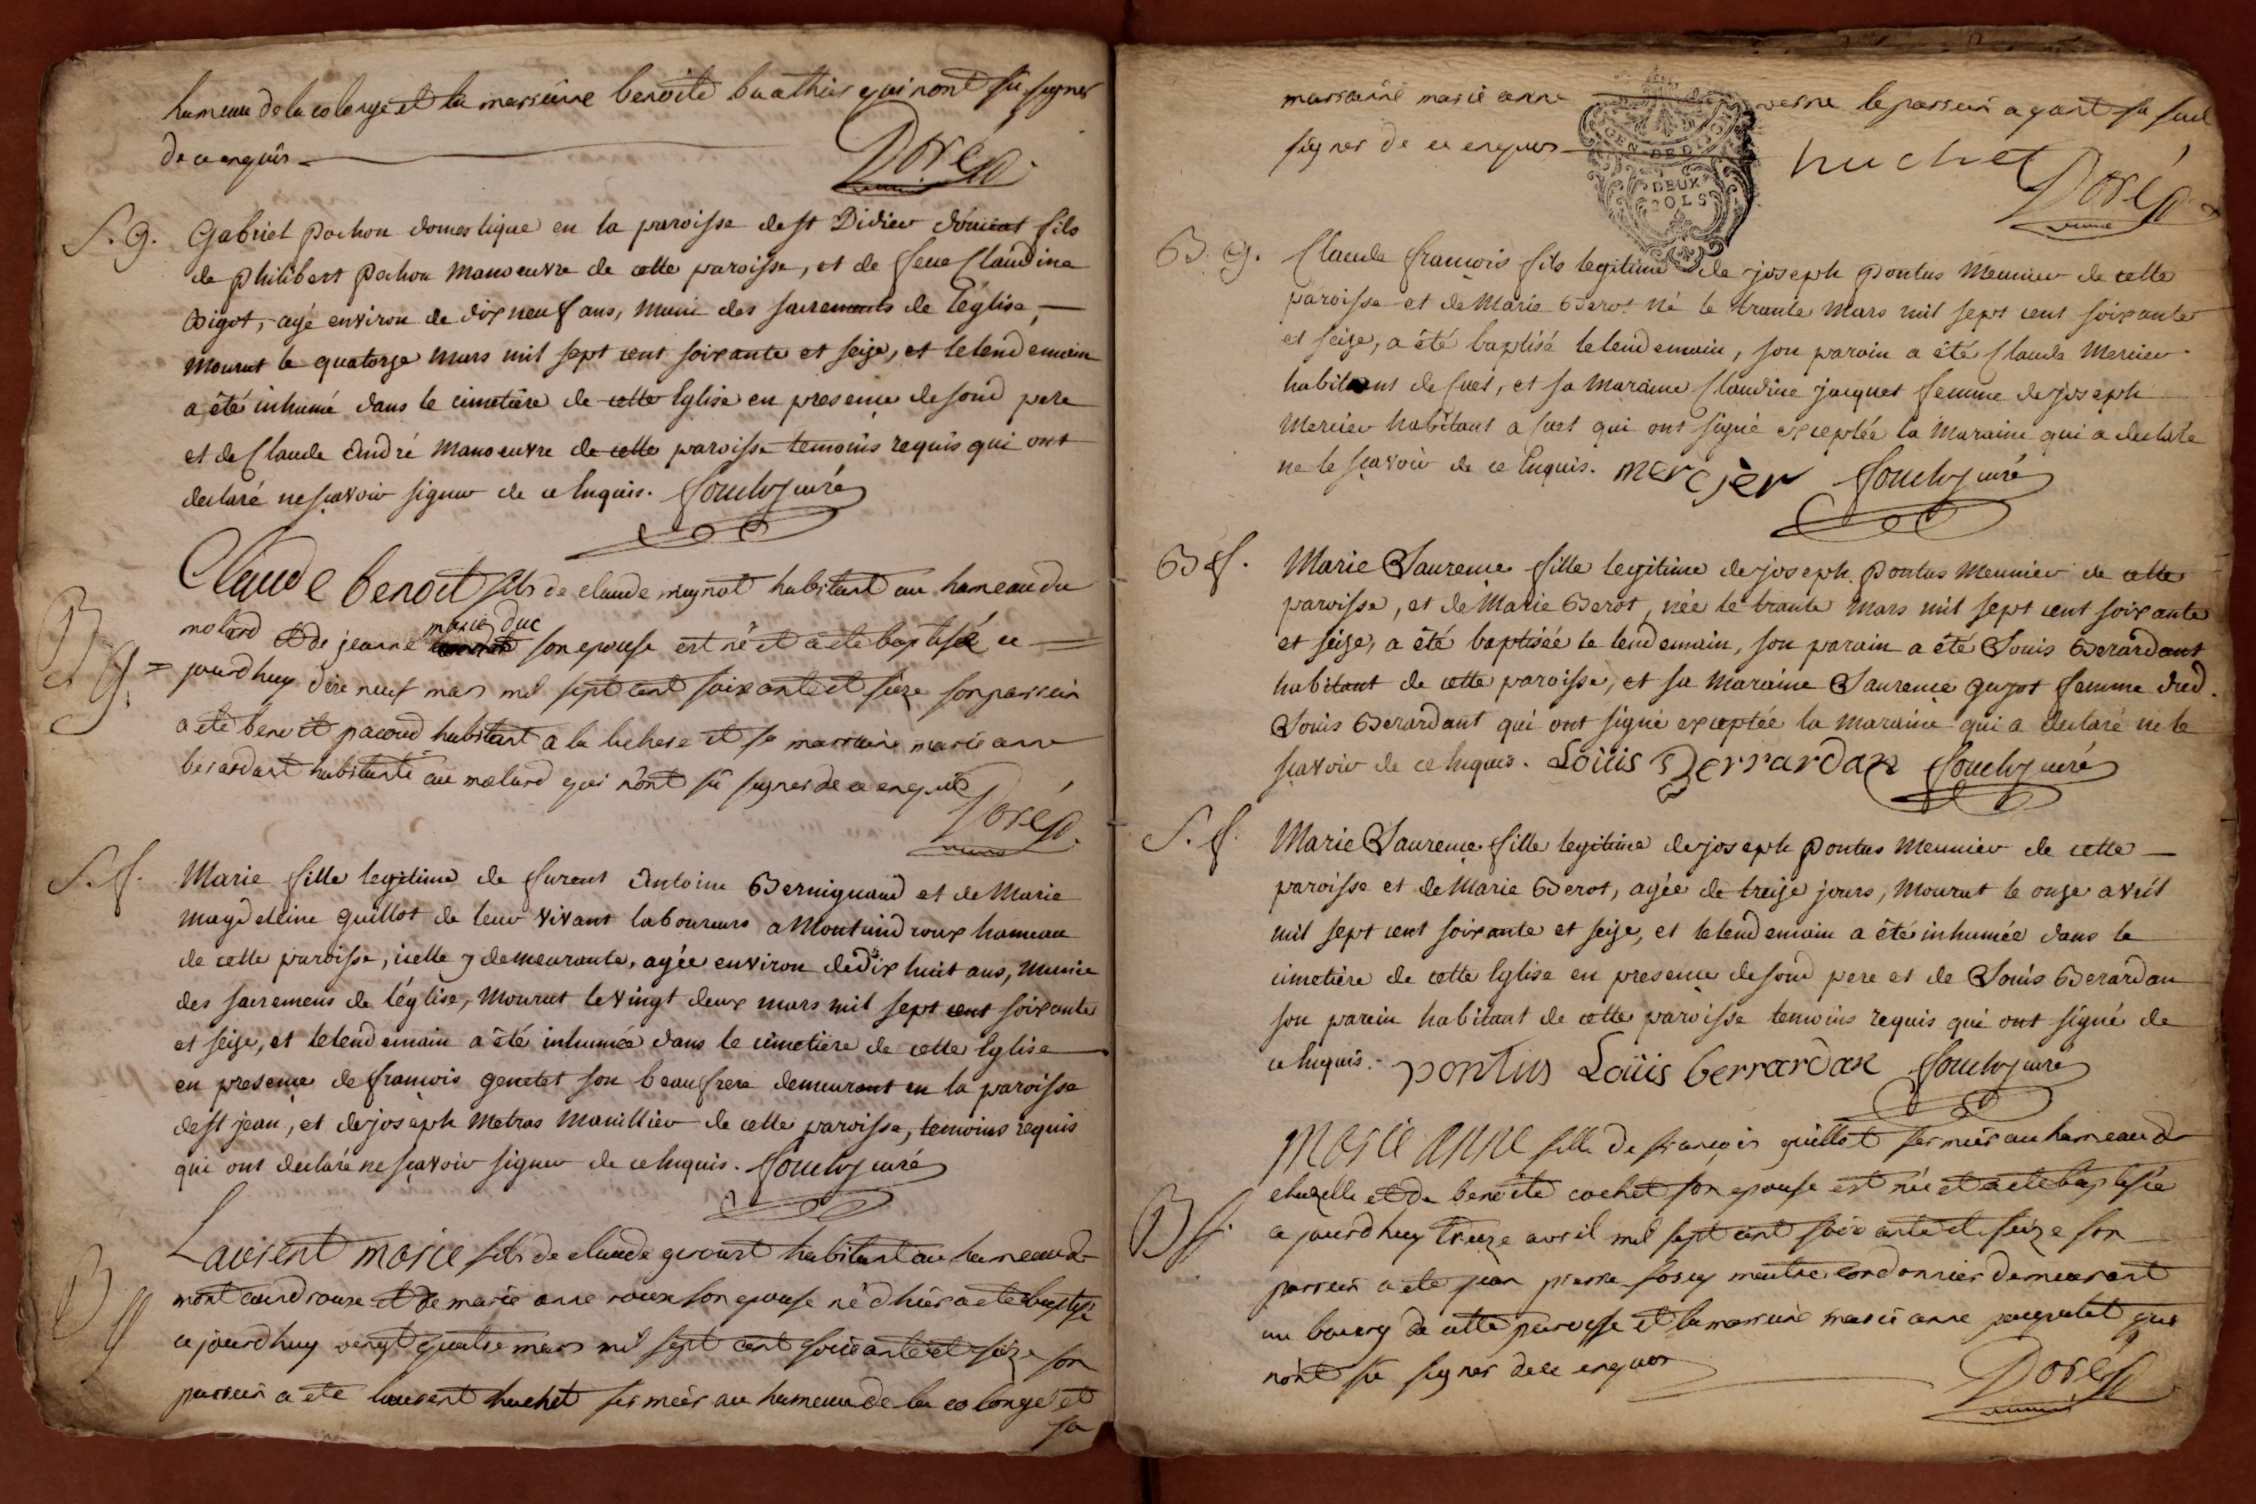 hameau de la colonge et la marraine benoite buathier qui n'ont sû signer
de ce enquis
Doré p.
S. g. Gabriel Pochon domestique en la paroisse de st Didier d'ormont fils
de philibert Pochon manoeuvre de cette paroisse, et de feue Claudine
Bigot, agé environ de dix neuf ans, muni des sacrements de l'église,
mourut le quatorze mars mil sept cent soixante et seize, et le lendemain
a été inhumé dans le cimetière de cette Eglise en presence de son d pere
et de Claude André manoeuvre de cette paroisse temoins requis qui ont
declaré ne sçavoir signer de ce Enquis. Souchy curé
Claude benoit fils de claude mignot habitant au hameau du
marie duc
molard et de jeanne son epouse est né et a ete baptisé ce
B g. jourd huy dixe neuf mars mil sept cent soixante et sieze son parrein
a ete benoit pacoud habitant a la lechere et sa marraine marie anne
berardant habitante au molard qui n'ont sû signer de ce enquis
Doré p.
S. f. Marie fille legitime de furent Antoine Berniguaud et de Marie
Magdelline Guillot de leur vivant laboureurs a Montcindroux hameau
de cette paroisse, icelle y demeurante, agée environ de dix huit ans, munie
des sacremens de l'église, mourut le vingt deux mars mil sept cent soixante
et seize, et le lendemain a été inhumée dans le cimetiere de cette Eglise
en presence de francois genetet son beaufrere demeurant en la paroisse
de st jean, et de joseph Metras Manillier de cette paroisse, temoins requis
qui ont declaré ne sçavoir signer de ce Enquis. Souchy curé
Laurent marie fils de claude girourt habitant au hameau de
mont cindroux et de marie anne roux son epouse né d'hier a ete baptisé
B g ce jourd huy vengt quatre mars mil sept cent soixante et sieze son
parrein a ete laurent huchet fermier au hameau de la colonge et
sa
marraine marie anne verne le parrein ayant su seul
signer de ce enquis huchet
GEN DE DIJON
DEUX
SOLS
Doré p.
B. g. Claude francois fils legitime de joseph Pontus Meunier de cette
paroisse et de Marie Berot né le trante mars mil sept cent soixante
et seize, a été baptisé le lendemain, son parain a été Claude Mercier
habitant de Cuet, et sa maraine Claudine jacquet femme de joseph
Mercier habitant a Cuet qui ont signé exceptée la maraine qui a declaré
ne le sçavoir de ce Enquis. mercjer Souchy curé
B f. Marie Laurence fille legitime de joseph Pontus Meunier de cette
paroisse, et de Marie Berot, née le trante mars mil sept cent soixante
et seize, a été baptisée le lendemain, son parain a été Louis Berardant
habitant de cette paroisse, et sa maraine Laurence guyot femme dud.
Louis Berardant qui ont signé exceptée la maraine qui a declaré ne le
sçavoir de ce Enquis. Loüis Berrardan Souchy curé
S. f. Marie Laurence fille legitime de joseph Pontus Meunier de cette
paroisse et de Marie Berot, agée de treize jours, mourut le onze avril
mil sept cent soixante et seize, et le lendemain a été inhumée dans le
cimetière de cette Eglise en presence de son d pere et de Louis Berardan
son parein habitant de cette paroisse temoins requis qui ont signé de
ce Enquis. pontus Loüis berrardan Souchy curé
Marie anne fille de françois guillot fermier au hameau de
chazelle et de benoite cochet son epouse est née et a ete baptisée
B f. ce jourd huy treize avril mil sept cent soixante et sieze son
parrein a ete jean pierre maitre cordonnier demeurant
au bourg de cette paroisse et la marraine marie anne paquetet qui
n'ont sû signer de ce enquis
Doré p.